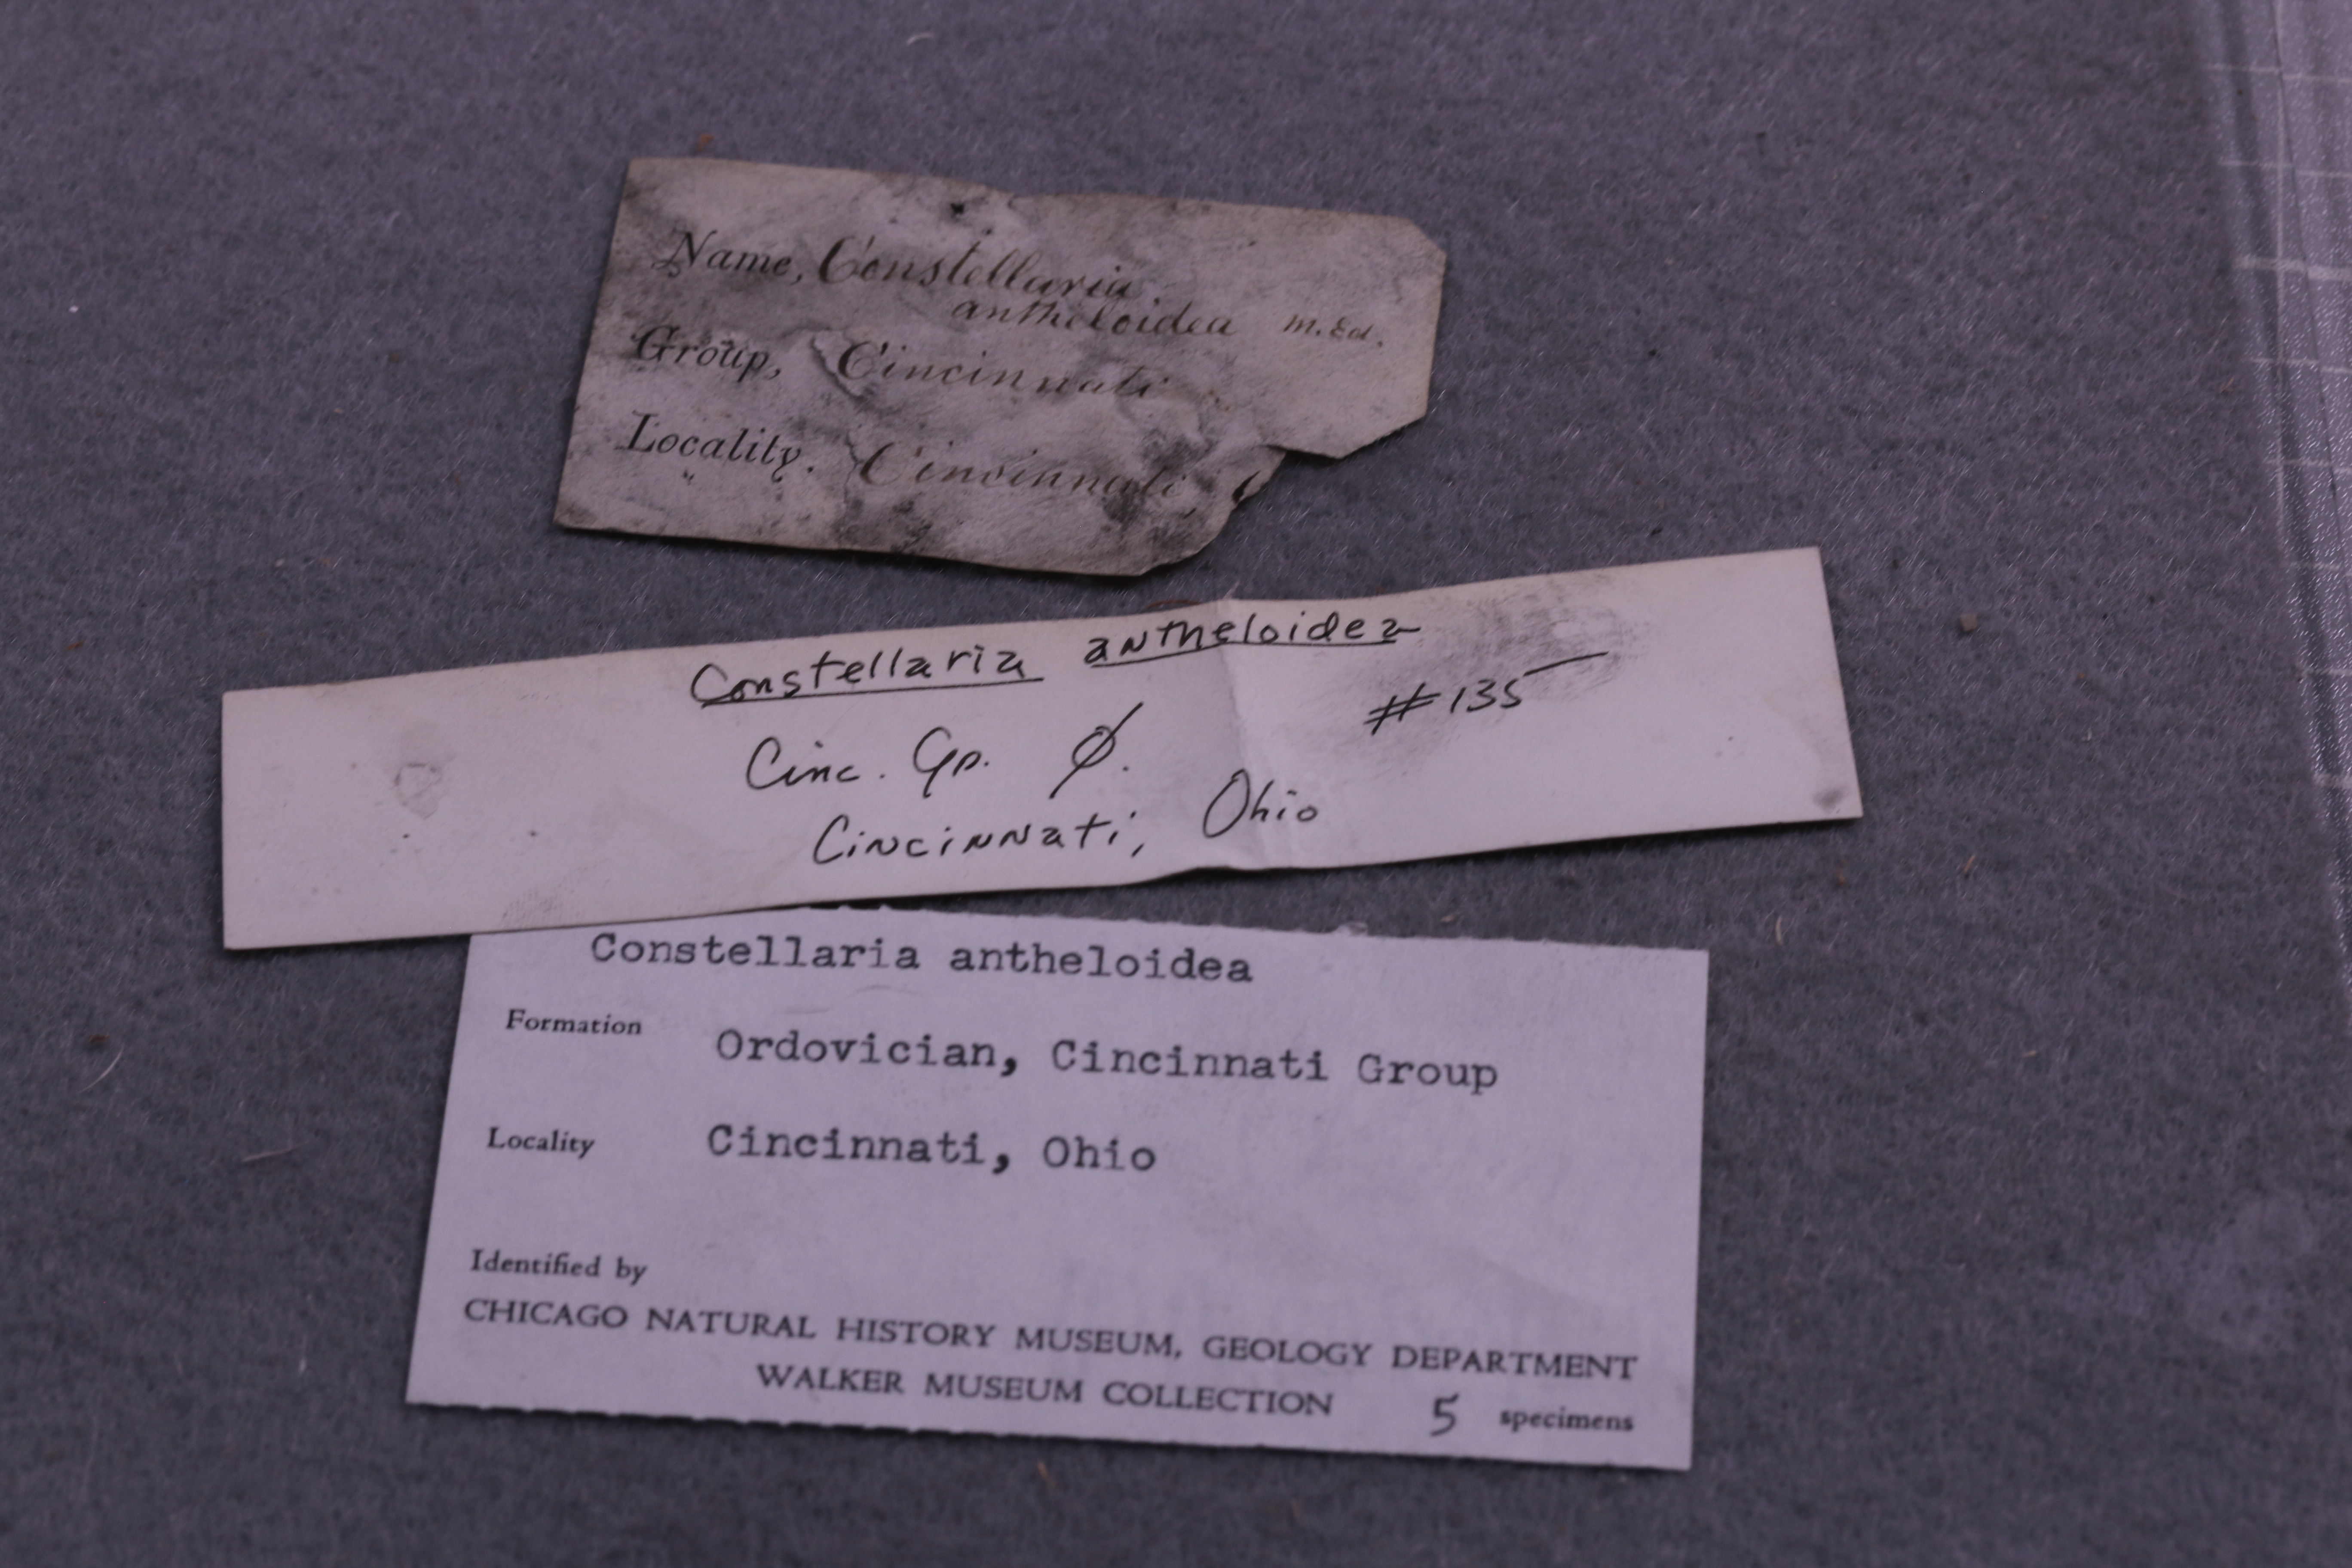 Name, Constellaria.
antheloidea M. Ed.
Group, Cincinnati
Locality. Cincinnati,
Constellaria antheloidea
#135
Cinc. Gp. Ø.
Cincinnati, Ohio
Constellaria antheloidea
Formation Ordovician, Cincinnati Group
Locality Cincinnati, Ohio
Identified by
CHICAGO NATURAL HISTORY MUSEUM, GEOLOGY DEPARTMENT
WALKER MUSEUM COLLECTION 5 specimens